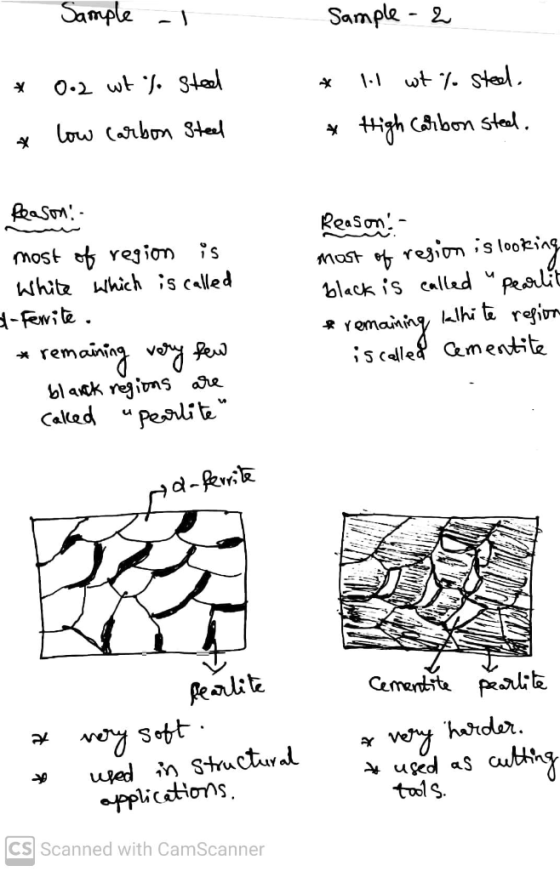 Sample - 1
* 0.2 wt % Steel
* low carbon Steel
Reason:-
most of region is
White which is called
α-Ferrite.
* remaining very few
black regions are
called "pearlite"
α-ferrite
Pearlite
* very soft.
* used in structural
applications.
Sample - 2
* 1.1 wt % Steel.
* High Carbon Steel.
Reason:-
most of region is looking
black is called "pearlit
* remaining White region
is called Cementite
Cementite pearlite
* very harder.
* used as cutting
tools.
CS Scanned with CamScanner